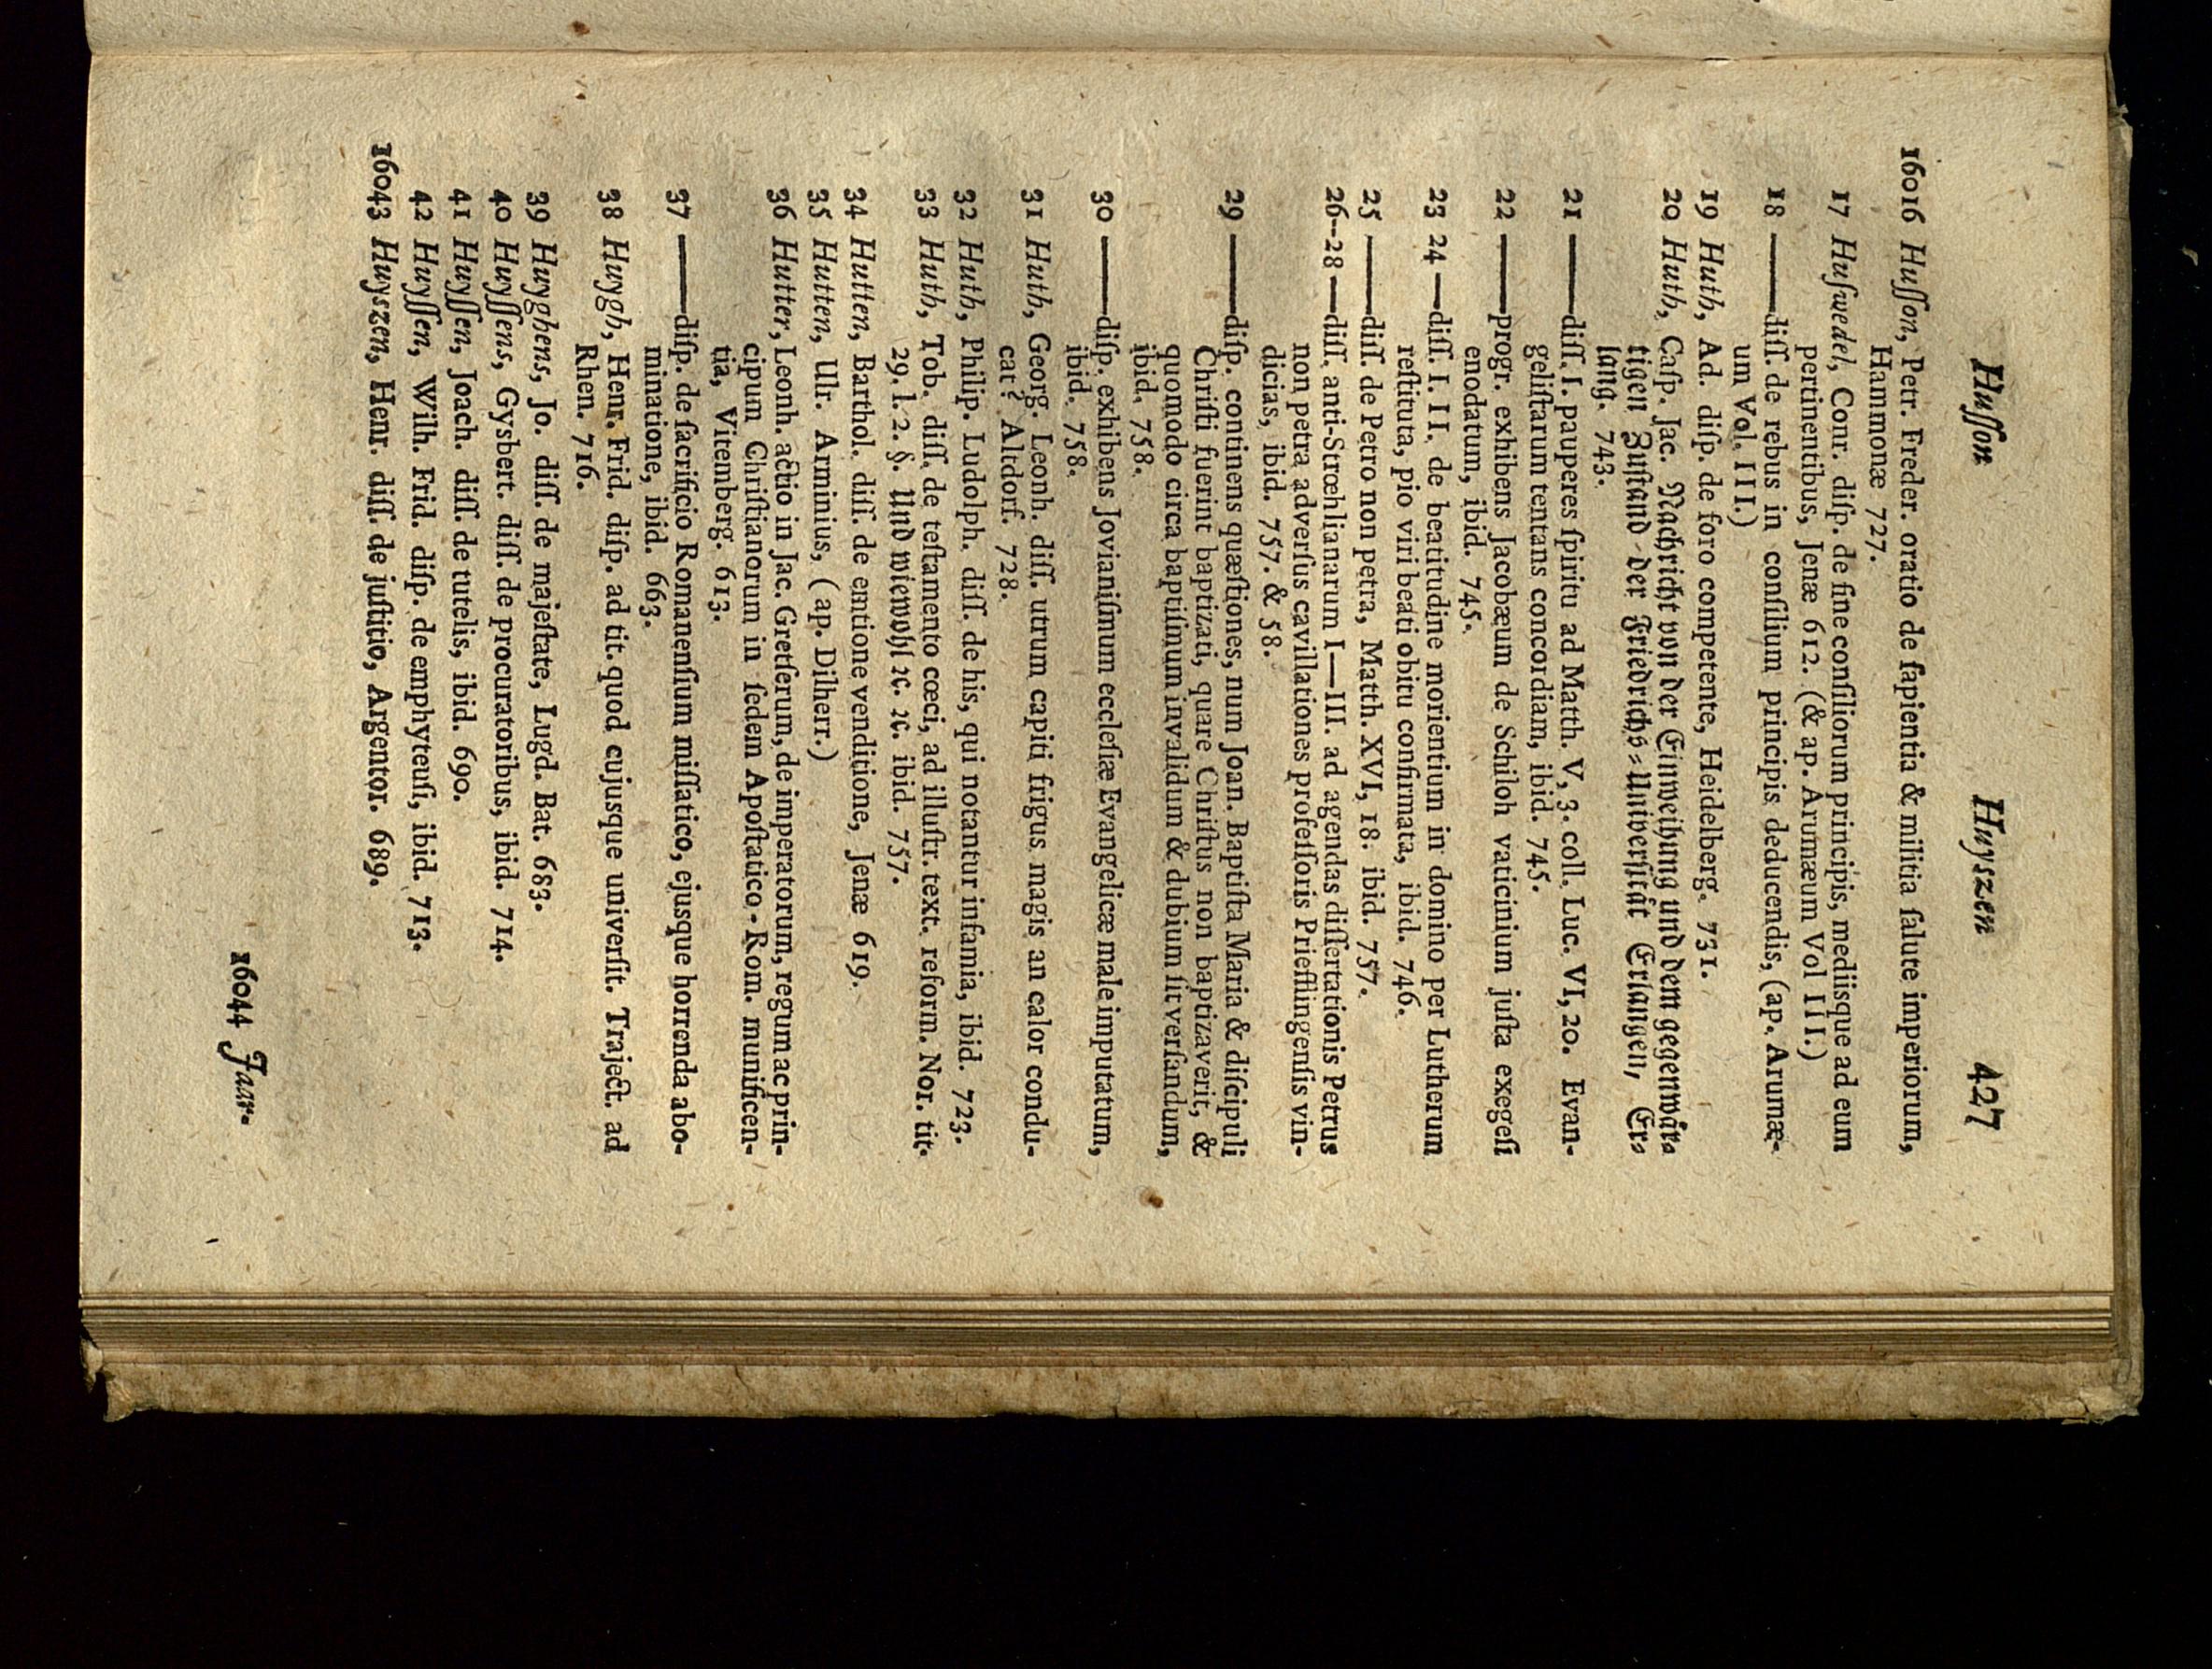 Huſſon Huyszen 427
16016 Huſſon, Petr. Freder. oratio de ſapientia & militia ſalute imperiorum,
Hammonæ 727.
17 Huſwedel, Conr. diſp. de fine conſiliorum principis, mediisque ad eum
pertinentibus, Jenæ 612. (& ap. Arumæum Vol III.)
18 —— diſſ. de rebus in conſilium principis deducendis, (ap. Arumæ-
um Vol. III.)
19 Huth, Ad. diſp. de foro competente, Heidelberg. 731.
20 Huth, Caſp. Jac. Nachricht von der Einweihung und dem gegenwår-
tigen Zuſtand der Friedrichs-Univerſitåt Erlangen, Er-
lang. 743.
21 —— diſſ. I. pauperes ſpiritu ad Matth. V, 3. coll. Luc. VI, 20. Evan-
geliſtarum tentans concordiam, ibid. 745.
22 —— progr. exhibens Jacobæum de Schiloh vaticinium juſta exegeſi
enodatum, ibid. 745.
23 24 — diſſ. I. II. de beatitudine morientium in domino per Lutherum
reſtituta, pio viri beati obitu confirmata, ibid. 746.
25 —— diſſ. de Petro non petra, Matth. XVI, 18. ibid. 757.
26-28 — diſſ. anti-Strœhlianarum I—III. ad agendas diſſertationis Petrus
non petra adverſus cavillationes profeſſoris Prieflingenſis vin-
dicias, ibid. 757. & 58.
29 —— diſp. continens quæſtiones, num Joan. Baptiſta Maria & diſcipuli
Chriſti fuerint baptizati, quare Chriſtus non baptizaverit, &
quomodo circa baptiſmum invalidum & dubium ſit verſandum,
ibid. 758.
30 —— diſp. exhibens Jovianiſmum eccleſiæ Evangelicæ male imputatum,
ibid. 758.
31 Huth, Georg. Leonh. diſſ. utrum capiti frigus magis an calor condu-
cat? Altdorf. 728.
32 Huth, Philip. Ludolph. diſſ. de his, qui notantur infamia, ibid. 723.
33 Huth, Tob. diſſ. de teſtamento cœci, ad illuſtr. text. reform. Nor. tit.
29. l. 2. §. Und wiewohl ꝛc. ꝛc. ibid. 757.
34 Hutten, Barthol. diſſ. de emtione venditione, Jenæ 619.
35 Hutten, Ulr. Arminius, (ap. Dilherr.)
36 Hutter, Leonh. actio in Jac. Gretſerum, de imperatorum, regum ac prin-
cipum Chriſtianorum in ſedem Apoſtatico-Rom. munificen-
tia, Vitemberg. 613.
37 —— diſp. de ſacrificio Romanenſium miſſatico, ejusque horrenda abo-
minatione, ibid. 663.
38 Huygh, Henr. Frid. diſp. ad tit. quod cujusque univerſit. Traject. ad
Rhen. 716.
39 Huyghens, Jo. diſſ. de majeſtate, Lugd. Bat. 683.
40 Huyſſens, Gysbert. diſſ. de procuratoribus, ibid. 714.
41 Huyſſen, Joach. diſſ. de tutelis, ibid. 690.
42 Huyſſen, Wilh. Frid. diſp. de emphyteuſi, ibid. 713.
16043 Huyszen, Henr. diſſ. de juſtitio, Argentor. 689.
16044 Jaar-